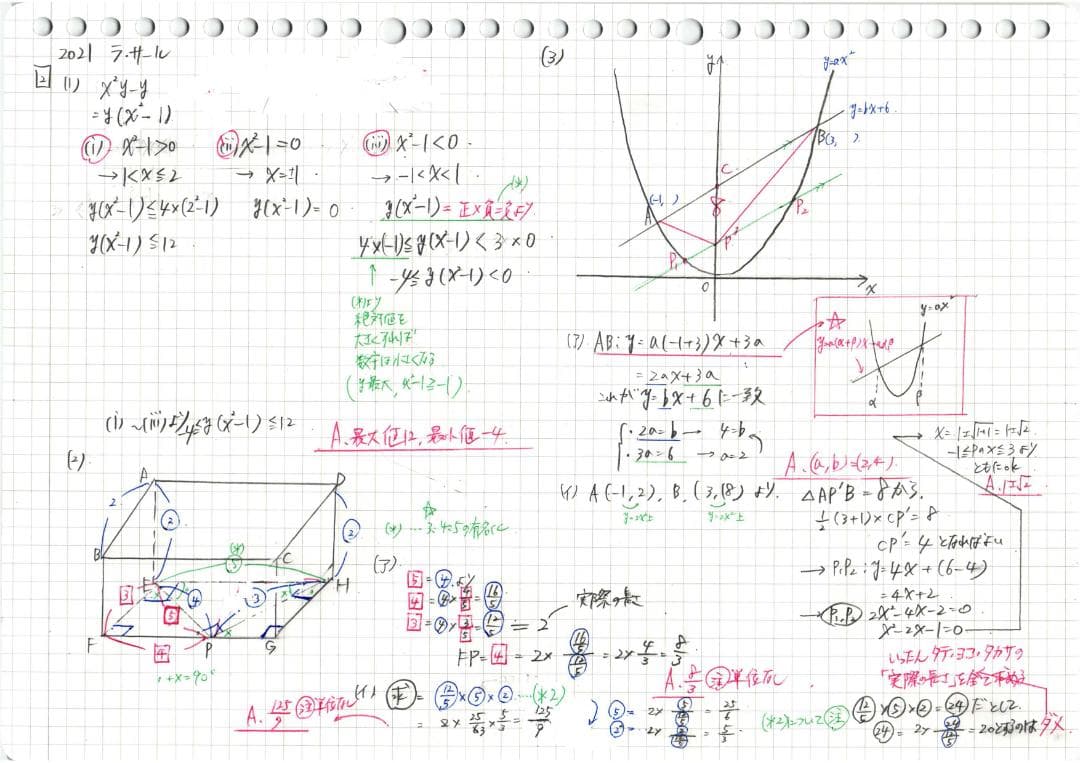 2021 ラ・サール
2 (1) x²y-y
=y(x²-1)
(i) x²-1>0
→1<x≦2
y(x²-1)≦4×(2²-1)
y(x²-1)≦12
(ii) x²-1=0
→ x=±1
y(x²-1)=0
(iii) x²-1<0
→-1<x<1
(*)
y(x²-1)=正×負=負より
4×(-1)≦y(x²-1)<3×0
-4≦y(x²-1)<0
↑
(*)より
絶対値を
大きくすれば
数字は小さくなる
(y最大, x²-1≧-1)
(i)~(iii)より-4≦y(x²-1)≦12
A. 最大値12, 最小値-4
(2)
A
D
2
②
②
B
C
(*)
⑤
E
H
3
④
③
5
F
4
P
G
○+×=90°
☆
(*)…3:4:5の有名比
(ア)
5=④より
4=④×4/5=⑯/5
3=④×3/5=⑫/5=2
実際の長さ
FP=4=2×(16/5)/(12/5)=2×4/3=8/3
A. 8/3 注単位なし
(イ) 求=⑫/5×⑤×②…(*2)
=2×25/6×5/3=125/9
A. 125/9 注単位なし
⑤=2×⑤/(12/5)=25/6
②=2×②/(12/5)=5/3
(*2)について注 ⑫/5×⑤×②=㉔だとして
㉔=2×24/(12/5)=20とするのはダメ
いったんタテ・ヨコ・タカサの
「実際の長さ」を全て求める
(3)
y
y=ax²
y=bx+6
B(3, )
C
(-1, )
A
8
P₂
P'
P₁
O
x
☆
y=ax²
y=a(α+β)x-aαβ
α
β
(ア) AB: y=a(-1+3)x+3a
=2ax+3a
これがy=bx+6に一致
2a=b → 4=b
3a=6 → a=2
A. (a,b)=(2,4).
(イ) A(-1,2), B(3,18)より.
y=2x²上
y=2x²上
△AP'B=8から,
1/2(3+1)×CP'=8
CP'=4となればよい
→P₁P₂: y=4x+(6-4)
=4x+2
→P₁,P₂ 2x²-4x-2=0
x²-2x-1=0
→ x=1±√1+1=1±√2
-1≦Pのx≦3より
ともにok
A. 1±√2